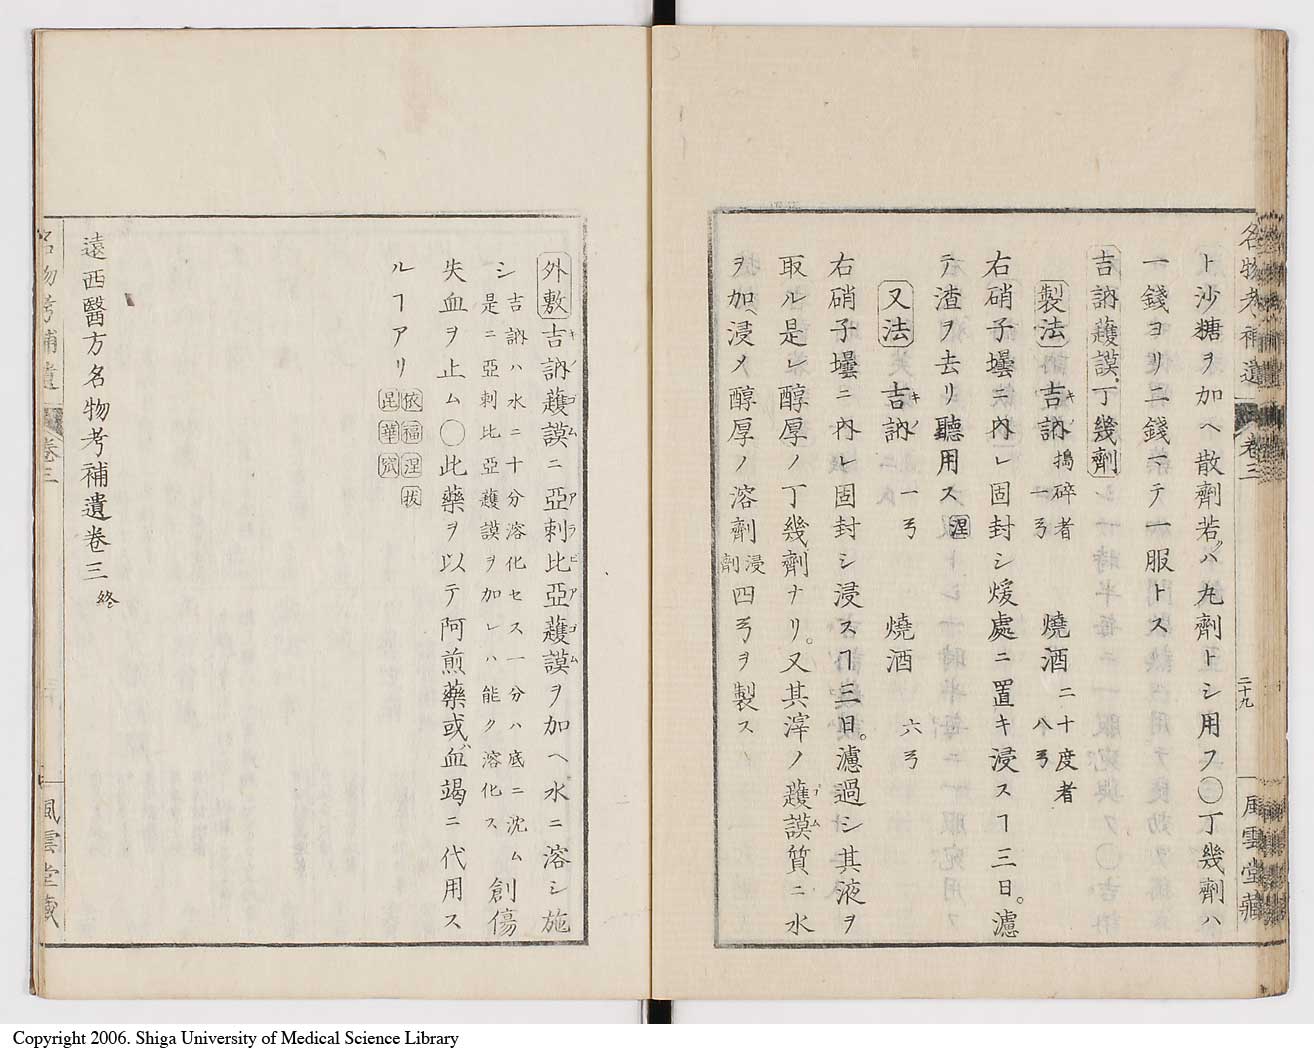 名物考補遺 卷三 二十九 風雲堂藏
ト沙糖ヲ加ヘ散劑若クハ丸劑トシ用フ〇丁幾劑ハ
一錢ヨリ二錢ニテ一服トス
吉訥護謨丁幾劑
製法 吉訥 搗碎者 一ヲ 燒酒 二十度者 八ヲ
右硝子壜ニ內レ固封シ煖處ニ置キ浸スヿ三日。濾
テ渣ヲ去リ聽用ス 涅
又法 吉訥 一ヲ 燒酒 六ヲ
右硝子壜ニ內レ固封シ浸スヿ三日。濾過シ其液ヲ
取ル是レ醇厚ノ丁幾劑ナリ。又其滓ノ護謨質ニ水
ヲ加ヘ浸メ醇厚ノ溶劑 浸劑 四ヲヲ製ス
外敷 吉訥護謨ニ亞剌比亞護謨ヲ加ヘ水ニ溶シ施
シ 吉訥ハ水ニ十分溶化セス一分ハ底ニ沈ム
是ニ亞剌比亞護謨ヲ加レハ能ク溶化ス 創傷
失血ヲ止ム〇此藥ヲ以テ阿煎藥或ハ血竭ニ代用ス
ルヿアリ 依福涅扶
昆華
遠西醫方名物考補遺卷三 終
名物考補遺 卷三 風雲堂藏
Copyright 2006. Shiga University of Medical Science Library